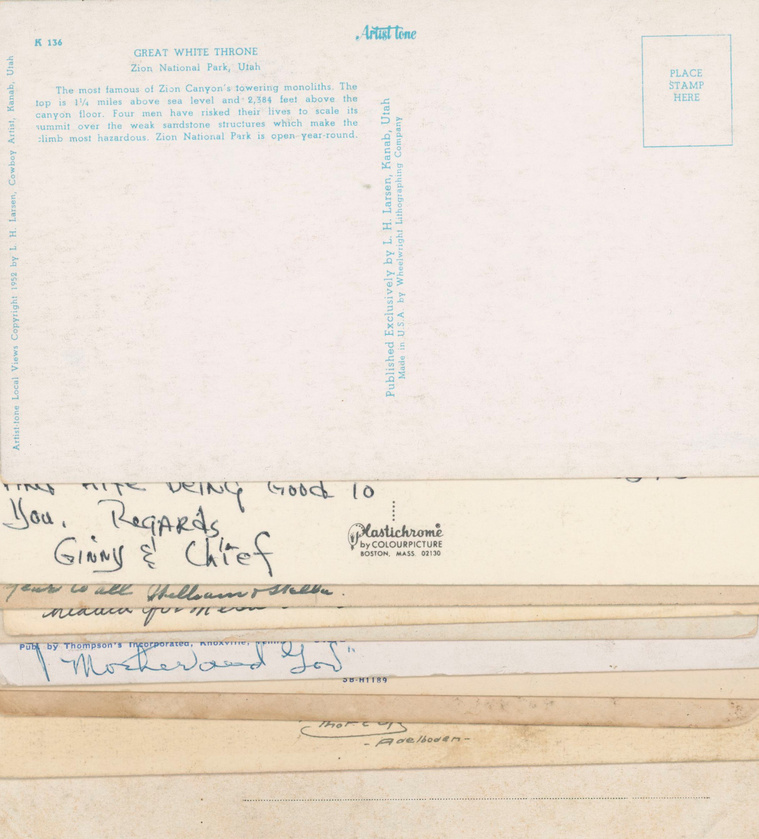 K 136
GREAT WHITE THRONE
Zion National Park, Utah
The most famous of Zion Canyon's towering monoliths. The
top is 1¼ miles above sea level and 2,384 feet above the
canyon floor. Four men have risked their lives to scale its
summit over the weak sandstone structures which make the
climb most hazardous. Zion National Park is open year-round.
Artist-tone Local Views Copyright 1952 by L. H. Larsen, Cowboy Artist, Kanab, Utah
Artist tone
Published Exclusively by L. H. Larsen, Kanab, Utah
Made in U.S.A. by Wheelwright Lithographing Company
PLACE
STAMP
HERE
Life Being Good To
You. Regards
Ginny & Chief
Plastichrome
by COLOURPICTURE
BOSTON, MASS. 02130
to all
Pub. by Thompson's Incorporated, Knoxville,
5B-H1189
- Adelboden -